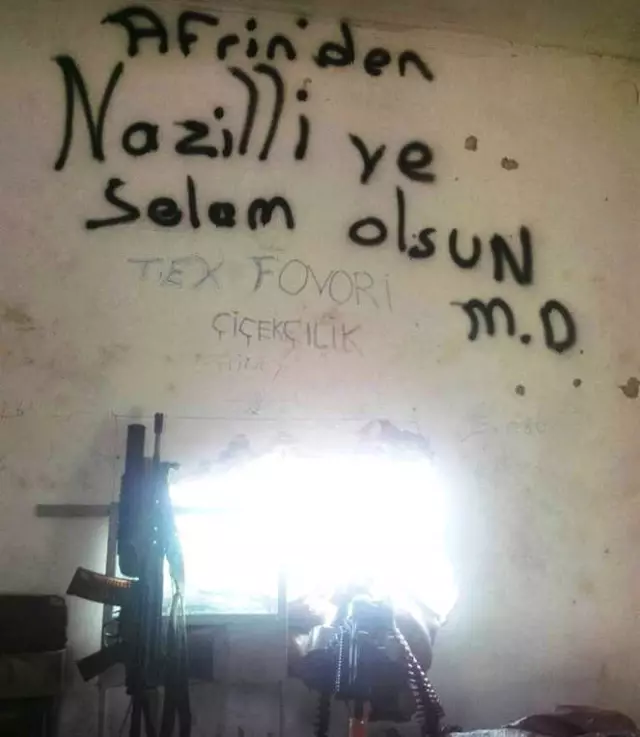 AFrin'den
Nazilli ye
Selam olsUN
M.D
TEX FOVORİ
ÇİÇEKÇİLİK